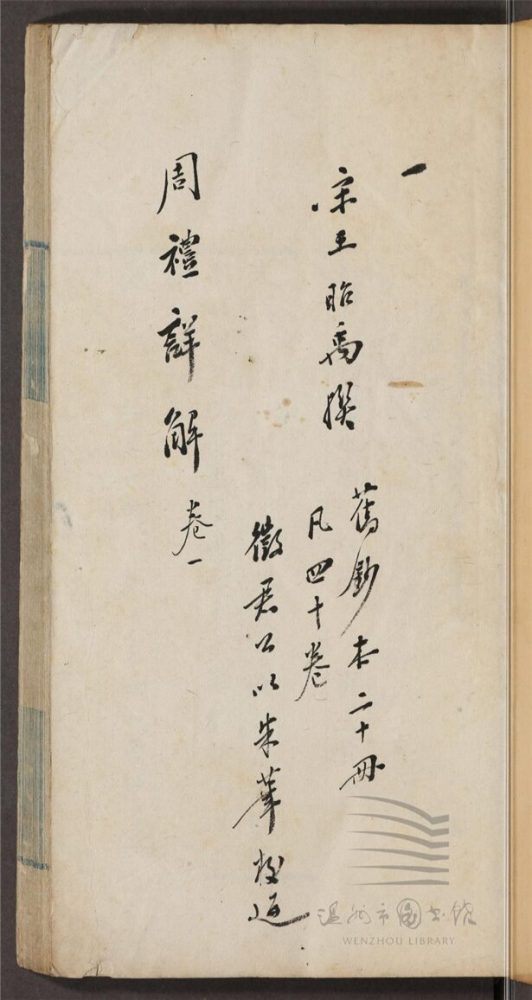 一
宋王昭禹撰
舊鈔本二十冊
凡四十卷
徵君公以朱筆校過
周禮詳解 卷一
温州市图书馆
WENZHOU LIBRARY